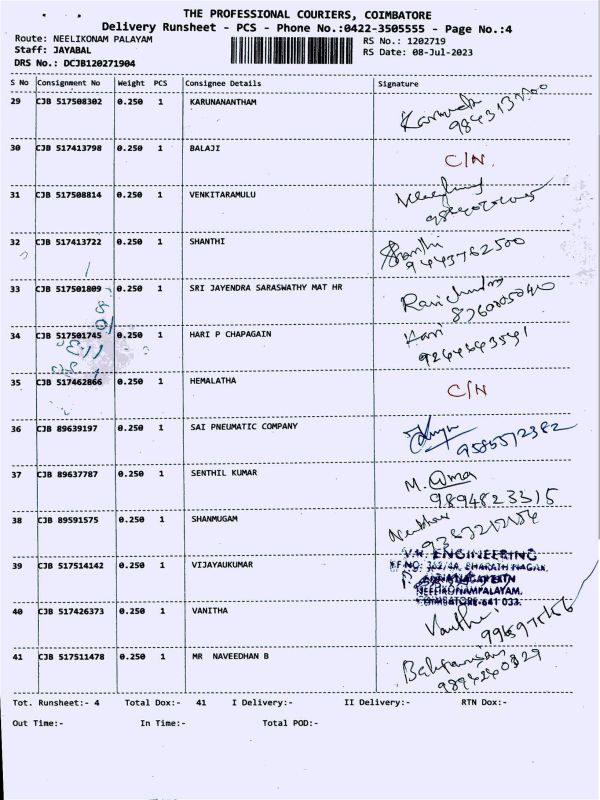 THE PROFESSIONAL COURIERS, COIMBATORE
Delivery Runsheet - PCS - Phone No.:0422-3505555 - Page No.:4
Route: NEELIKONAM PALAYAM RS No.: 1202719
Staff: JAYABAL RS Date: 08-Jul-2023
DRS No.: DCJB120271904
S No Consignment No Weight PCS Consignee Details Signature
29 CJB 517508302 0.250 1 KARUNANANTHAM
30 CJB 517413798 0.250 1 BALAJI C/N.
31 CJB 517508814 0.250 1 VENKITARAMULU
32 CJB 517413722 0.250 1 SHANTHI Shanthi
9443762500
33 CJB 517501809 0.250 1 SRI JAYENDRA SARASWATHY MAT HR Ravichandran
34 CJB 517501745 0.250 1 HARI P CHAPAGAIN Hari
35 CJB 517462866 0.250 1 HEMALATHA C/N
36 CJB 89639197 0.250 1 SAI PNEUMATIC COMPANY 9585572382
37 CJB 89637787 0.250 1 SENTHIL KUMAR M. Uma
9894823315
38 CJB 89591575 0.250 1 SHANMUGAM
39 CJB 517514142 0.250 1 VIJAYAUKUMAR V.R. ENGINEERING
BHARATH NAGAR,
NEELIKONAMPALAYAM,
COIMBATORE-641 033.
40 CJB 517426373 0.250 1 VANITHA
41 CJB 517511478 0.250 1 MR NAVEEDHAN B
9894240829
Tot. Runsheet:- 4 Total Dox:- 41 I Delivery:- II Delivery:- RTN Dox:-
Out Time:- In Time:- Total POD:-